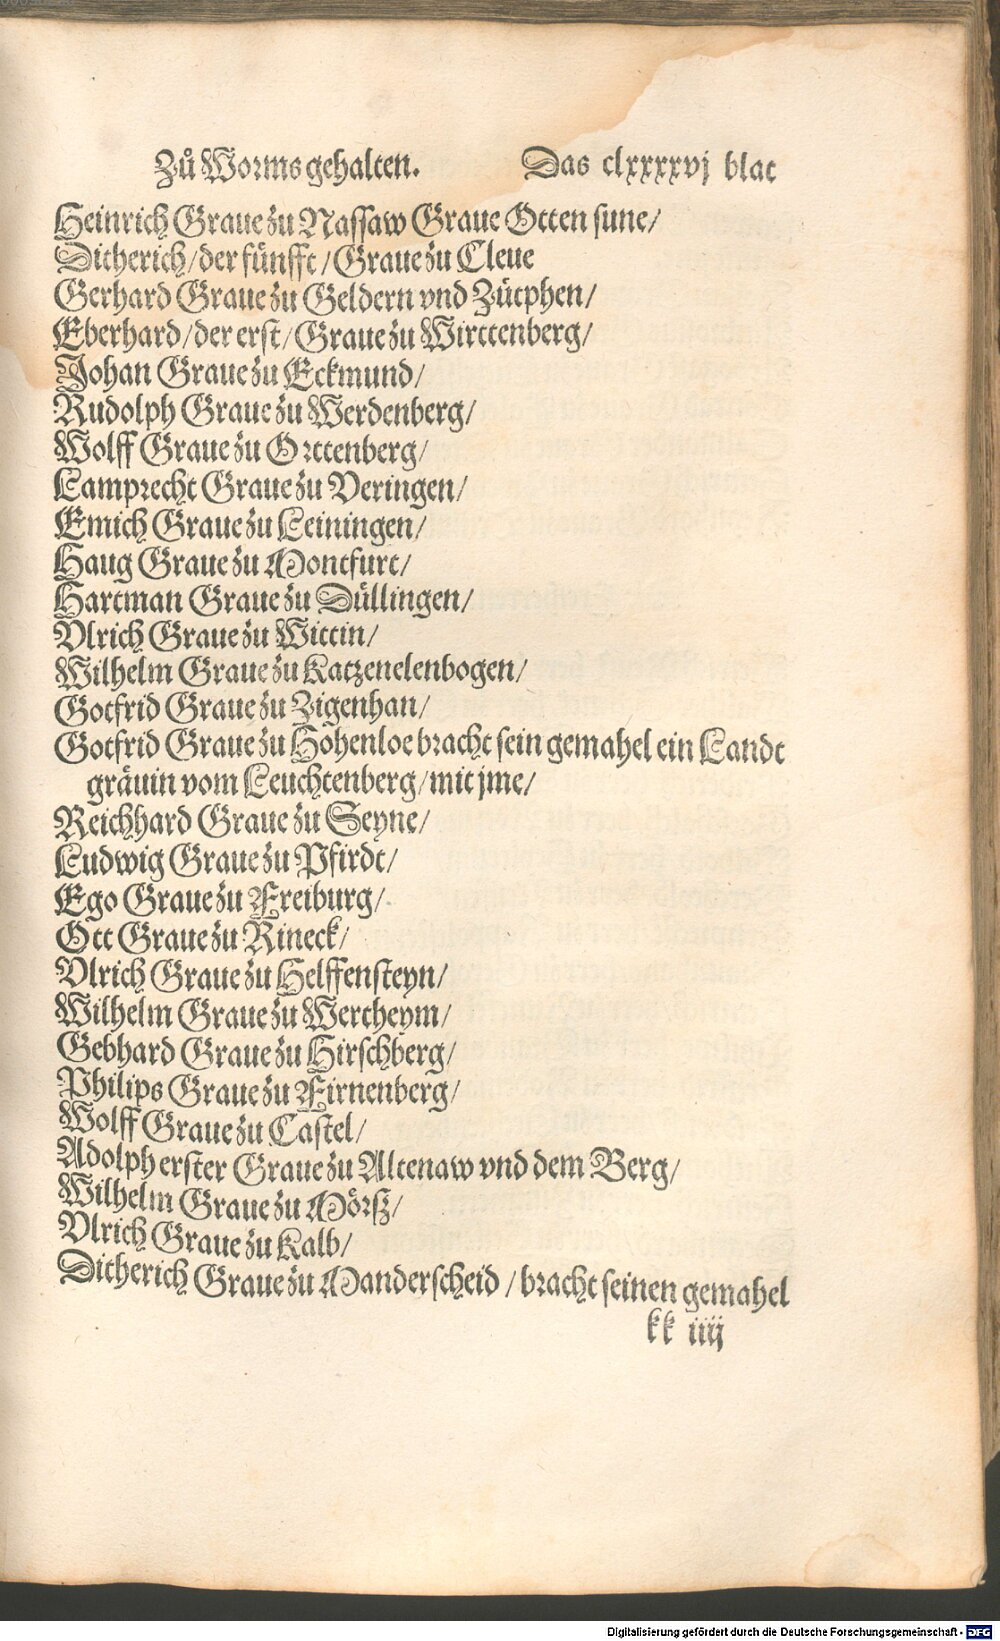 Zů Worms gehalten. Das clxxxxvj blat
Heinrich Graue zu Nassaw Graue Otten sune/
Ditherich/der fünfft/Graue zu Cleue
Gerhard Graue zu Geldern vnd Zütphen/
Eberhard/der erst/Graue zu Wirttenberg/
Johan Graue zu Eckmund/
Rudolph Graue zu Werdenberg/
Wolff Graue zu Orttenberg/
Lamprecht Graue zu Veringen/
Emich Graue zu Leiningen/
Haug Graue zu Montfurt/
Hartman Graue zu Düllingen/
Vlrich Graue zu Wittin/
Wilhelm Graue zu Katzenelenbogen/
Gotfrid Graue zu Zigenhan/
Gotfrid Graue zu Hohenloe bracht sein gemahel ein Landt
gräuin vom Leuchtenberg/mit jme/
Reichhard Graue zu Seyne/
Ludwig Graue zu Pfirdt/
Ego Graue zu Freiburg/
Ott Graue zu Rineck/
Vlrich Graue zu Helffensteyn/
Wilhelm Graue zu Wertheym/
Gebhard Graue zu Hirschberg/
Philips Graue zu Firnenberg/
Wolff Graue zu Castel/
Adolph erster Graue zu Altenaw vnd dem Berg/
Wilhelm Graue zu Mörß/
Vlrich Graue zu Kalb/
Ditherich Graue zu Manderscheid/bracht seinen gemahel
kk iiij
Digitalisierung gefördert durch die Deutsche Forschungsgemeinschaft - DFG